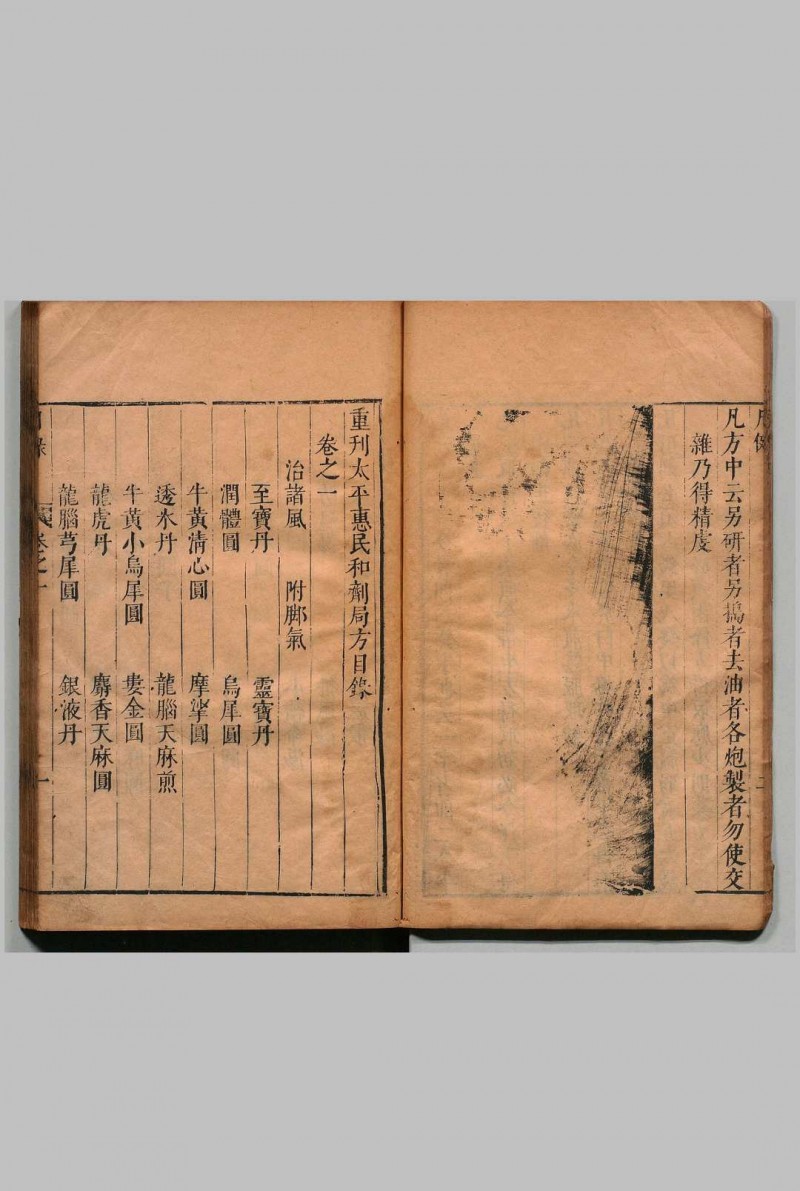 凡方中云另研者另搗者去油者各炮製者勿使交
雜乃得精虔
二
重刊太平惠民和劑局方目錄
卷之一
治諸風 附脚氣
至寶丹 靈寶丹
潤體圓 烏犀圓
牛黃清心圓 摩挲圓
透氷丹 龍腦天麻煎
牛黃小烏犀圓 婁金圓
龍虎丹 麝香天麻圓
龍腦芎犀圓 銀液丹
卷之一 一